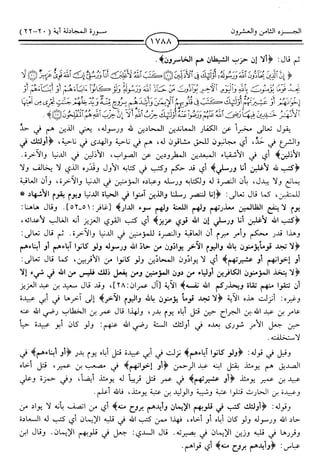 الجـــزء الثامن والعشرون
١٧٨٨
سورة المجادلة آية ( ٢٠-٢٢)
ثم قال: ﴿ألا إن حزب الشيطان هم الخاسرون﴾.
﴿ إِنَّ ٱلَّذِينَ يُحَآدُّونَ ٱللَّهَ وَرَسُولَهُۥٓ أُو۟لَٰٓئِكَ فِى ٱلْأَذَلِّينَ كَتَبَ ٱللَّهُ لَأَغْلِبَنَّ أَنَا۠ وَرُسُلِىٓ إِنَّ ٱللَّهَ قَوِىٌّ عَزِيزٌ
لَّا تَجِدُ قَوْمًا يُؤْمِنُونَ بِٱللَّهِ وَٱلْيَوْمِ ٱلْءَاخِرِ يُوَآدُّونَ مَنْ حَآدَّ ٱللَّهَ وَرَسُولَهُۥ وَلَوْ كَانُوٓا۟ ءَابَآءَهُمْ أَوْ أَبْنَآءَهُمْ أَوْ
يقول تعالى مخبراً عن الكفار المعاندين المحادين لله ورسوله، يعني الذين هم في حدٍّ
والشرع في حدٍّ، أي مجانبون للحق مشاقون له، هم في ناحية والهدى في ناحية، ﴿أولئك في
الأذلين﴾ أي في الأشقياء المبعدين المطرودين عن الصواب، الأذلين في الدنيا والآخرة.
﴿كتب الله لأغلبن أنا ورسلي﴾ أي قد حكم وكتب في كتابه الأول وقدّره الذي لا يخالف ولا
يمانع ولا يبدل، بأن النصرة له ولكتابه ورسله وعباده المؤمنين في الدنيا والآخرة، وأن العاقبة
للمتقين، كما قال تعالى: ﴿إنا لننصر رسلنا والذين آمنوا في الحياة الدنيا ويوم يقوم الأشهاد *
يوم لا ينفع الظالمين معذرتهم ولهم اللعنة ولهم سوء الدار﴾ [غافر: ٥١، ٥٢]. وقال هاهنا:
﴿كتب الله لأغلبن أنا ورسلي إن الله قوي عزيز﴾ أي كتب القوي العزيز أنه الغالب لأعدائه،
وهذا قدر محكم وأمر مبرم أن العاقبة والنصرة للمؤمنين في الدنيا والآخرة. ثم قال تعالى:
﴿لا تجد قوماً يؤمنون بالله واليوم الآخر يوادّون من حادّ الله ورسوله ولو كانوا آباءهم أو أبناءهم
أو إخوانهم أو عشيرتهم﴾ أي لا يوادّون المحادّين ولو كانوا من الأقربين، كما قال تعالى:
﴿لا يتخذ المؤمنون الكافرين أولياء من دون المؤمنين ومن يفعل ذلك فليس من الله في شيء إلا
أن تتقوا منهم تقاة ويحذركم الله نفسه﴾ الآية [آل عمران: ٢٨]، وقد قال سعيد بن عبد العزيز
وغيره: أنزلت هذه الآية ﴿لا تجد قوماً يؤمنون بالله واليوم الآخر﴾ إلى آخرها في أبي عبيدة
عامر بن عبد الله بن الجراح حين قتل أباه يوم بدر، ولهذا قال عمر بن الخطاب رضي الله عنه
حين جعل الأمر شورى بعده في أولئك الستة رضي الله عنهم: ولو كان أبو عبيدة حياً
لاستخلفته.
وقيل في قوله: ﴿ولو كانوا آباءهم﴾ نزلت في أبي عبيدة قتل أباه يوم بدر ﴿أو أبناءهم﴾ في
الصديق هم يومئذ بقتل ابنه عبد الرحمن ﴿أو إخوانهم﴾ في مصعب بن عمير، قتل أخاه
عبيد بن عمير يومئذ ﴿أو عشيرتهم﴾ في عمر قتل قريباً له يومئذ أيضاً، وفي حمزة وعلي
وعبيدة بن الحارث قتلوا عتبة وشيبة والوليد بن عتبة يومئذ، فالله أعلم.
وقوله: ﴿أولئك كتب في قلوبهم الإيمان وأيدهم بروح منه﴾ أي من اتصف بأنه لا يواد من
حاد الله ورسوله ولو كان أباه أو أخاه، فهذا ممن كتب الله في قلبه الإيمان أي كتب له السعادة
وقررها في قلبه وزين الإيمان في بصيرته. وقال السدي: جعل في قلوبهم الإيمان. وقال ابن
عباس: ﴿وأيدهم بروح منه﴾ أي قواهم.